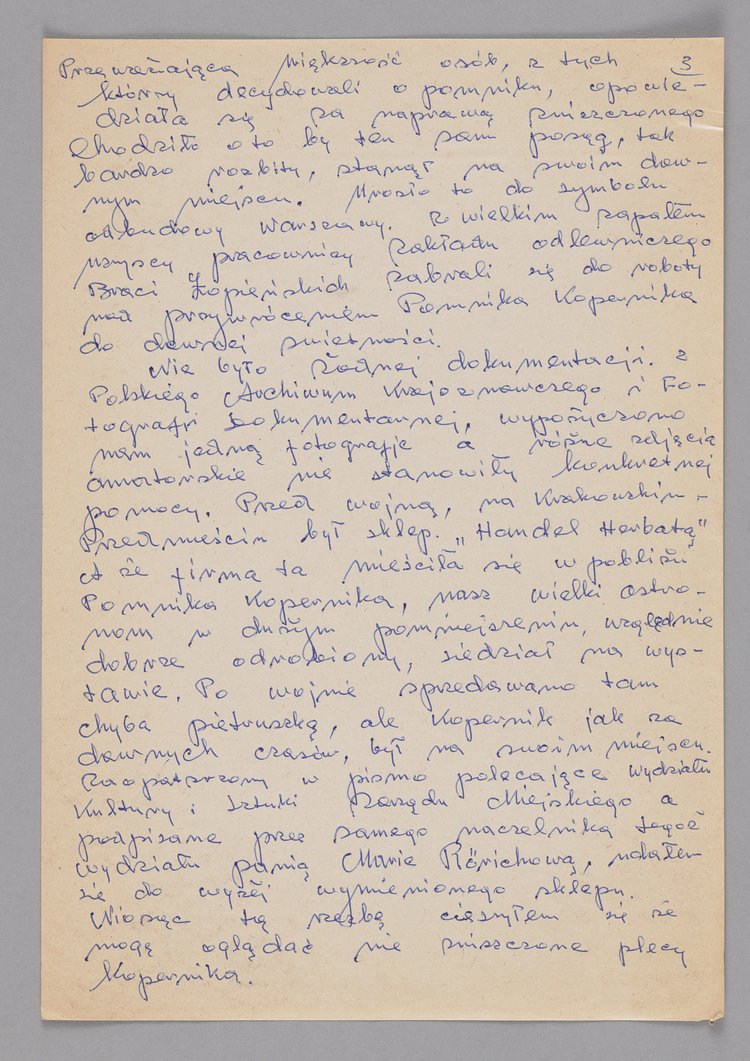 3
Przeważająca większość osób, z tych
którzy decydowali o pomniku, opowie-
działa się za naprawą zniszczonego
Chodziło o to by ten sam posąg, tak
bardzo rozbity, stanął na swoim daw-
nym miejscu. Urosło to do symbolu
odbudowy Warszawy. Z wielkim zapałem
wszyscy pracownicy Zakładu odlewniczego
Braci Łopieńskich zabrali się do roboty
nad przywróceniem Pomnika Kopernika
do dawnej świetności.
Nie było żadnej dokumentacji. Z
Polskiego Archiwum Krajoznawczego i Fo-
tografii Dokumentarnej, wypożyczono
nam jedną fotografję a różne zdjęcia
amatorskie nie stanowiły konkretnej
pomocy. Przed wojną, na Krakowskim-
Przedmieściu był sklep. „Handel Herbatą"
A że firma ta mieściła się w pobliżu
Pomnika Kopernika, nasz wielki astro-
nom w dużym pomniejszeniu, względnie
dobrze odrobiony, siedział na wys-
tawie. Po wojnie sprzedawano tam
chyba pietruszką, ale Kopernik jak za
dawnych czasów, był na swoim miejscu.
Zaopatrzony w pismo polecające wydziału
Kultury i Sztuki Zarządu Miejskiego a
podpisane przez samego naczelnika tegoż
wydziału panią Marie Rörichową, udałem
się do wyżej wymienionego sklepu.
Niosąc tą rzeźbą cieszyłem się że
mogą oglądać nie zniszczone plecy
Kopernika.